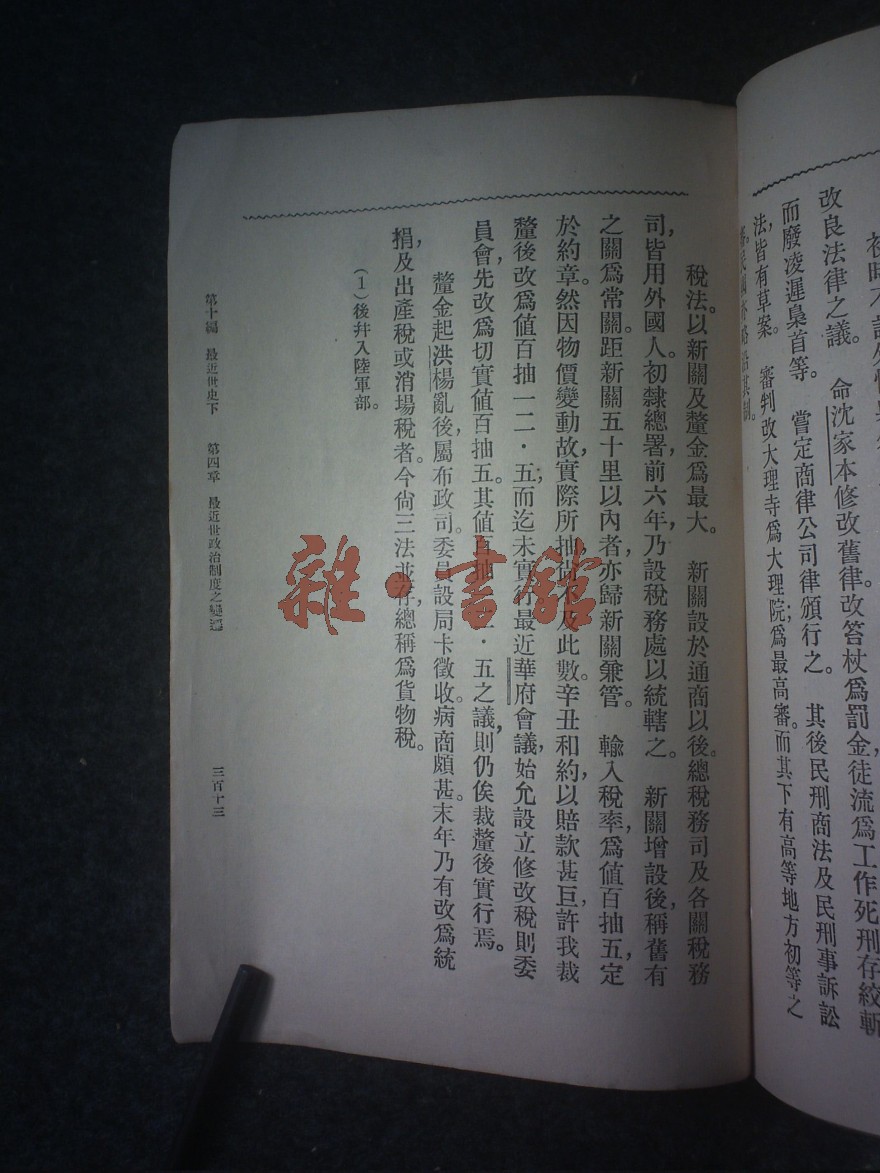 改良法律之議。 命沈家本修改舊律改笞杖爲罰金，徒流爲工作死刑存絞斬
而廢凌遲梟首等。 嘗定商律公司律頒行之。 其後民刑商法及民刑事訴訟
法，皆有草案。 審判改大理寺爲大理院；爲最高審。而其下有高等地方初等之
稅法。以新關及釐金爲最大。 新關設於通商以後總稅務司及各關稅務
司，皆用外國人。初隸總署，前六年，乃設稅務處以統轄之。 新關增設後，稱舊有
之關爲常關。距新關五十里以內者，亦歸新關兼管。 輸入稅率，爲値百抽五，定
於約章。然因物價變動故，實際所抽，尚不及此數。辛丑和約，以賠款甚巨，許我裁
釐後改爲値百抽一二·五；而迄未實行。最近華府會議，始允設立修改稅則委
員會，先改爲切實値百抽五。其値百抽一二·五之議，則仍俟裁釐後實行焉。
釐金起洪楊亂後，屬布政司。委員設局卡徵收。病商頗甚。末年乃有改爲統
捐，及出產稅或消場稅者。今尙三法並存，總稱爲貨物稅。
(1)後幷入陸軍部。
第十編 最近世史下 第四章 最近世政治制度之變遷
三百十三
雜·書館